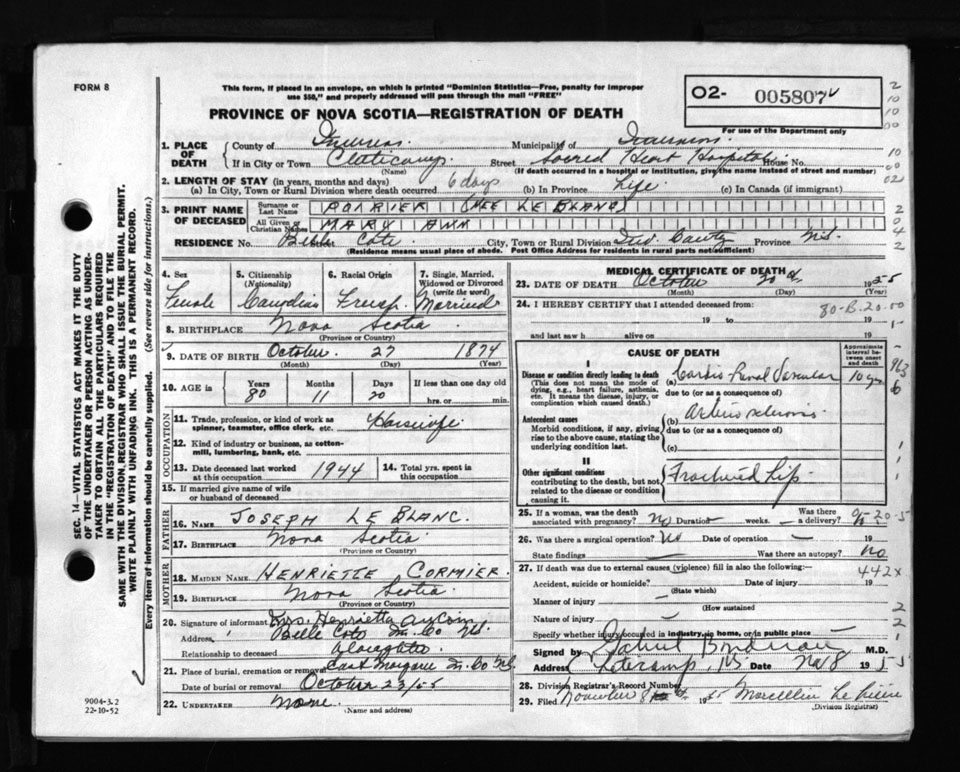 FORM 8
This form, if placed in an envelope, on which is printed "Dominion Statistics—Free, penalty for improper
use $50," and properly addressed will pass through the mail "FREE"
O2- 005807
For use of the Department only
PROVINCE OF NOVA SCOTIA—REGISTRATION OF DEATH
1. PLACE OF DEATH
County of Inverness Municipality of Inverness
If in City or Town Cheticamp. Street Sacred Heart Hospital House No.
(Name) (If death occurred in a hospital or institution, give the name instead of street and number)
2. LENGTH OF STAY (in years, months and days)
(a) In City, Town or Rural Division where death occurred 6 days (b) In Province Life (c) In Canada (if immigrant)
3. PRINT NAME OF DECEASED
Surname or Last Name POIRIER (NEE LE BLANC)
All Given or Christian Names MARY ANN
RESIDENCE No. Belle Cote City, Town or Rural Division Inv. County Province N.S.
(Residence means usual place of abode. Post Office Address for residents in rural parts not sufficient)
4. Sex Female
5. Citizenship (Nationality) Canadian
6. Racial Origin French
7. Single, Married, Widowed or Divorced (write the word) Married
8. BIRTHPLACE Nova Scotia
(Province or Country)
9. DATE OF BIRTH October 27 1874
(Month) (Day) (Year)
10. AGE in Years 80 Months 11 Days 20 If less than one day old
hrs. or min.
OCCUPATION
11. Trade, profession, or kind of work as spinner, teamster, office clerk, etc. Housewife
12. Kind of industry or business, as cotton-mill, lumbering, bank, etc.
13. Date deceased last worked at this occupation 1944 14. Total yrs. spent in this occupation
15. If married give name of wife or husband of deceased
FATHER
16. NAME JOSEPH LE BLANC.
17. BIRTHPLACE Nova Scotia
(Province or Country)
MOTHER
18. MAIDEN NAME HENRIETTE CORMIER.
19. BIRTHPLACE Nova Scotia
(Province or Country)
20. Signature of informant Mrs. Henrietta AuCoin
Address Belle Cote In. Co N.S.
Relationship to deceased daughter
21. Place of burial, cremation or removal East Margaree In. Co N.S.
Date of burial or removal October 23/55
22. UNDERTAKER None
(Name and address)
MEDICAL CERTIFICATE OF DEATH
23. DATE OF DEATH October 20 1955
(Month) (Day)
24. I HEREBY CERTIFY that I attended deceased from:
19 to 19
and last saw h alive on 19
CAUSE OF DEATH
Approximate interval between onset and death
I
Disease or condition directly leading to death
(This does not mean the mode of dying, e.g., heart failure, asthenia, etc. It means the disease, injury, or complication which caused death.)
(a) Cardio Renal Vascular 10 yrs
due to (or as a consequence of)
Antecedent causes
Morbid conditions, if any, giving rise to the above cause, stating the underlying condition last.
(b) Arteriosclerosis
due to (or as a consequence of)
(c)
II
Other significant conditions
contributing to the death, but not related to the disease or condition causing it.
Fractured hip
25. If a woman, was the death associated with pregnancy? No Duration weeks. Was there a delivery?
26. Was there a surgical operation? No Date of operation — 19
State findings — Was there an autopsy? No
27. If death was due to external causes (violence) fill in also the following:— 442x
Accident, suicide or homicide? Date of injury 19
(State which)
Manner of injury —
(How sustained
Nature of injury —
Specify whether injury occurred in industry, in home, or in public place —
Signed by M.D.
Address Cheticamp, NS Date Nov 8 1955
28. Division Registrar's Record Number
29. Filed November 8 1955
(Division Registrar)
SEC. 14—VITAL STATISTICS ACT MAKES IT THE DUTY
OF THE UNDERTAKER OR PERSON ACTING AS UNDER-
TAKER TO OBTAIN ALL THE PARTICULARS REQUIRED
IN THE "REGISTRATION OF DEATH" AND TO FILE THE
SAME WITH THE DIVISION REGISTRAR WHO SHALL ISSUE THE BURIAL PERMIT.
WRITE PLAINLY WITH UNFADING INK. THIS IS A PERMANENT RECORD.
Every item of information should be carefully supplied. (See reverse side for instructions.)
9004-3.2
22-10-52